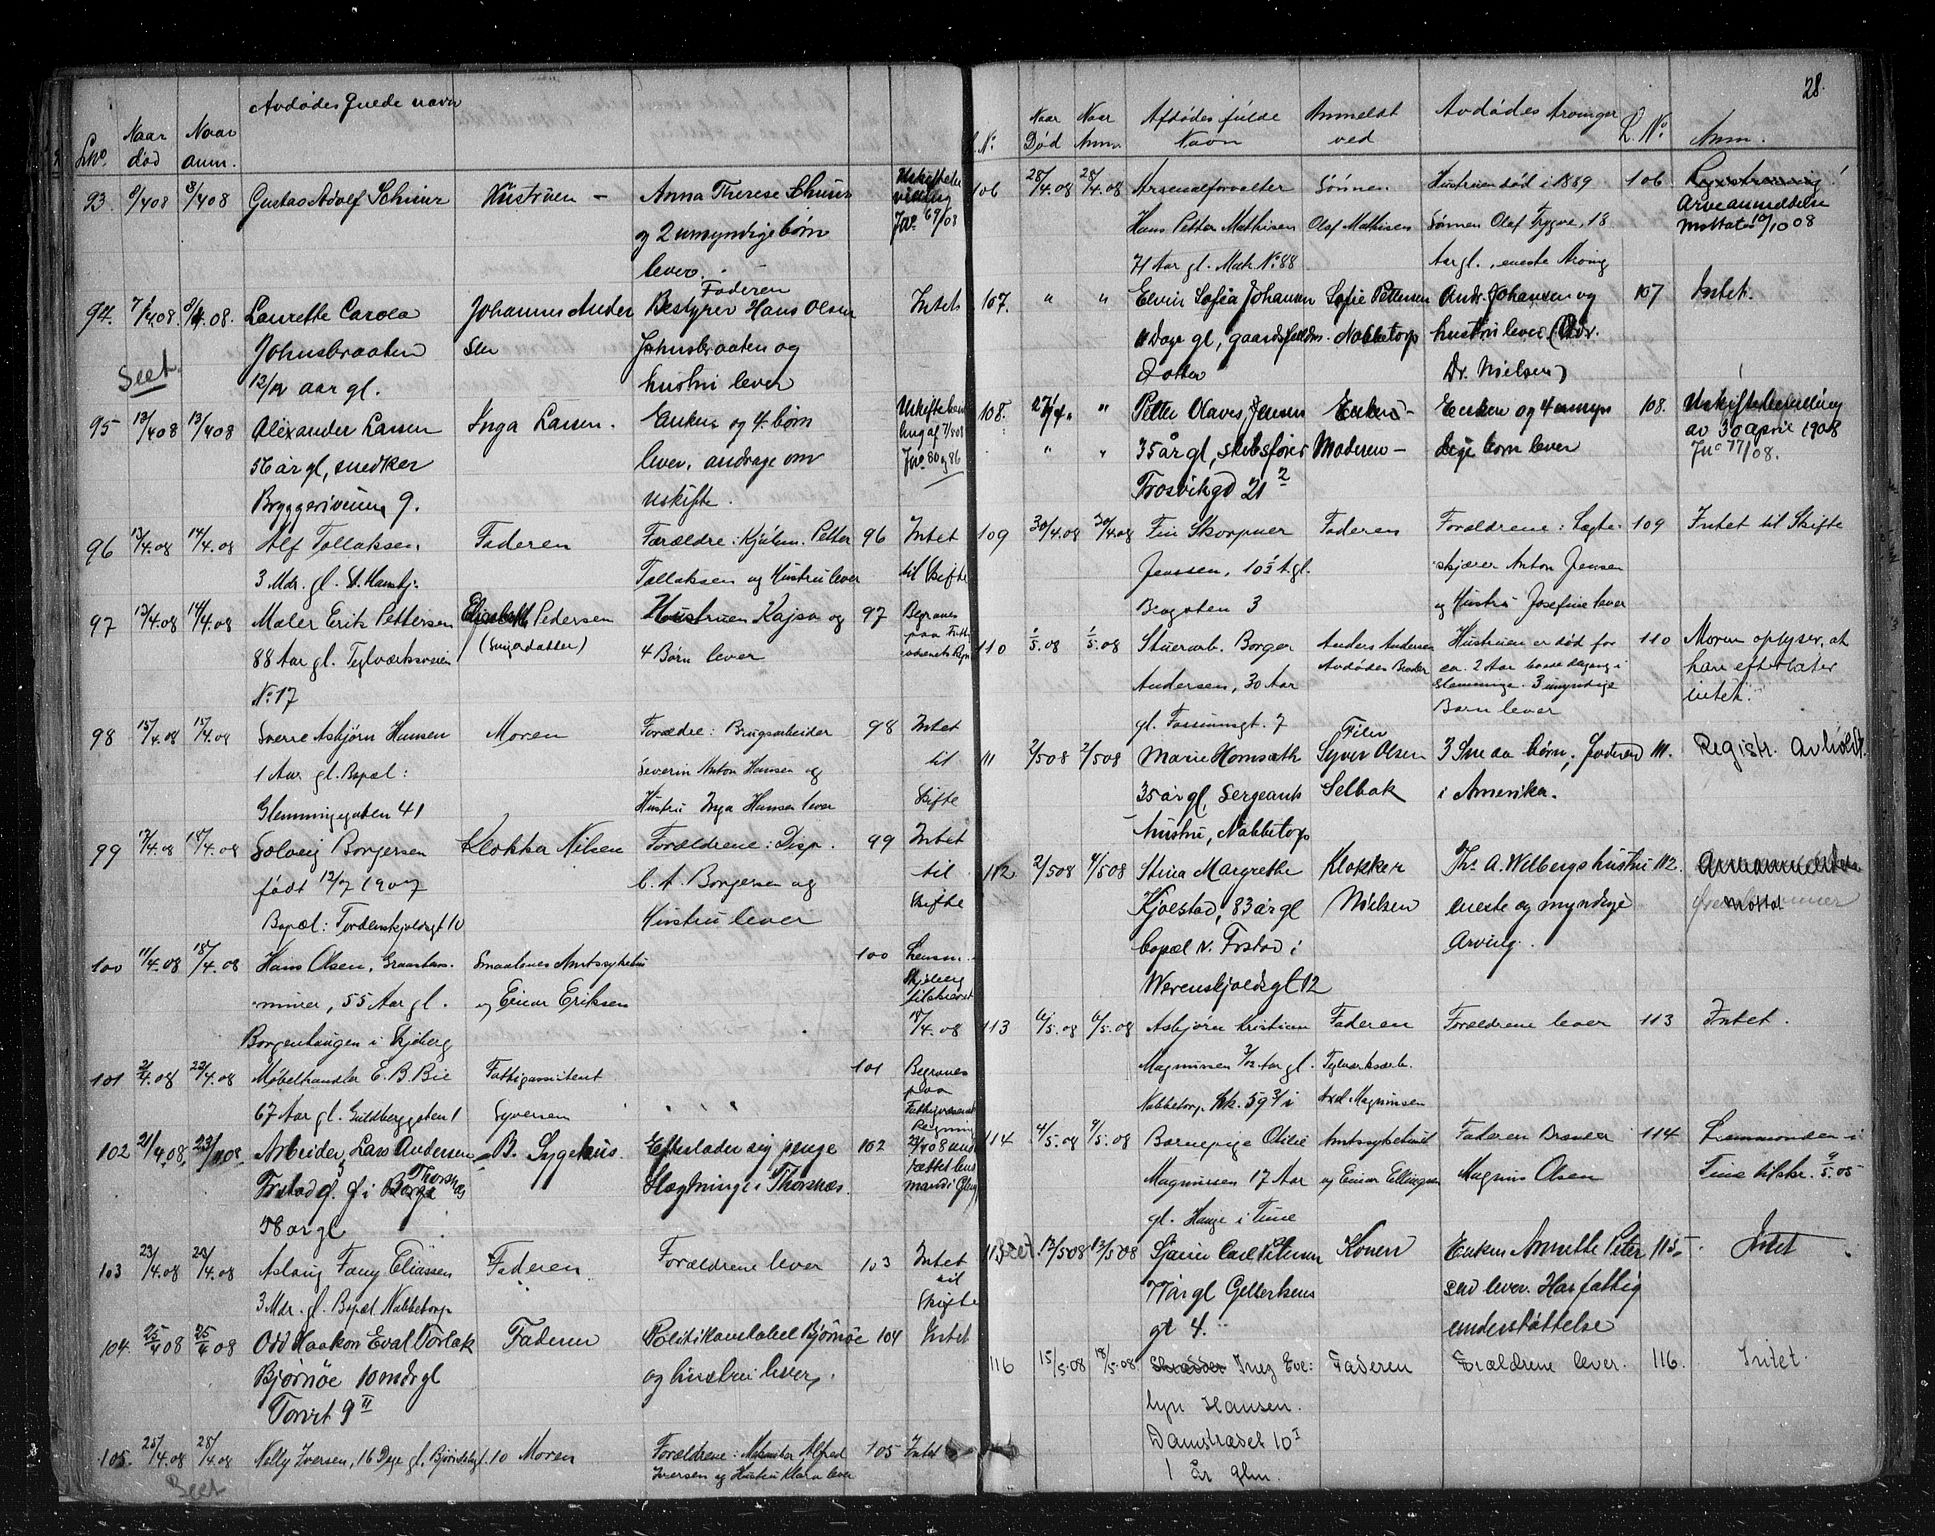 Avdødes fulde navn
Lno. Naar død Naar anm.
93 8/4 08 8/4 08 Gustav Adolf Schiuer Hustruen – Anna Therese
og 2 umyndige børn
lever.
Jno 69/08
94. 7/4 08 8/4 08. Laurette Carola Johannes Ander Faderen Bestyrer Hans Olsen Intet
Johnsbraaten sen Johnsbraaten og
Seet. 12/12 aar gl. hustru lever
95 12/4 08 13/4 08 Alexander Larsen Inga Larsen. Enken og 4 børn
56 år gl, snedker lever, andrage om
Bryggeriveien 9. uskifte.
Jno 80 og 86
96 13/4 08 14/4 08 Alf Tollaksen Faderen Forældre: Kjølem. Petter 96 Intet
3 Mdr. gl. St. Hansfj: Tollaksen og Hustru lever til Skifte
97 13/4 08 14/4 08 Maler Erik Pettersen Elisabeth Pedersen Hustruen Kajsa og 97 Begraves
88 Aar gl. Teglværksveien (Svigerdatter) 4 Børn lever paa
No 17
98 15/4 08 15/4 08 Sverre Asbjørn Hansen Moren Forældre: Brugsarbeider 98 Intet
1 Aar gl. Bopæl: Severin Anton Hansen og til
Glemmingegaten 41 Hustru Inga Hansen lever Skifte
99 17/4 08 18/4 08 Solveig Borgersen Klokker Nilsen Forældrene: Disp. 99 Intet
født 12/7 1907 C. A. Borgersen og til
Bopæl: Tordenskjoldsgt 10 Hustru lever Skifte
100 17/4 08 18/4 08 Hans Olsen, Graastens- Smaalenes Amtssykehus 100 Lensm.
murer, 55 Aar gl. og Einar Eriksen Skjeberg
Borgenhaugen i Skjeberg tilskrevet
18/4 08
101 21/4 08 22/4 08 Møbelhandler E. B. Bie Fattigassistent 101 Begraves
67 Aar gl. Guldberggaten 1 Syversen paa
Fattigvæsenets
Regning
102 21/4 08. 23/4 08. Arbeider Lars Andersen B. Sygehus. Efterlader sig penge 102
Thorsnæs i Borge Slægtninge i Thorsnæs.
58 år gl
103 23/4 08 24/4 08 Aslaug Fany Eliassen Faderen Forældrene lever 103 Intet
3 Mdr. gl. Bopæl Nabbetorp til
Skifte
104. 25/4 08 25/4 08 Odd Haakon Eval Torlak Faderen Politikonstabel Bjørnøe 104 Intet
Bjørnøe 10 mdr gl og hustru lever.
Torvet 9 II
105. 25/4 08 28/4 08 Nelly Iversen, 16 Dage gl, 10 Moren Forældrene: Alfred 105 Intet
Seet Iversen og Hustru Klara lever
28.
No. Naar Død Naar Anm. Afdødes fulde Navn Anmeldt ved Avdødes Arvinger L. No. Anm.
106 28/4 08 28/4 08 Arsenalforvalter Sønnen Hustruen død i 1889 106
Hans Petter Mathisen Olaf Mathisen Sønnen Olaf Trygve, 18 Arveanmeldelse
71 Aar gl. Matr. No. 88 Aar gl., eneste Arving mottat 10/10 08
107. " " Elvin Sofia Johansen Sofie Pettersen Andr. Johansen og 107 Intet.
11 Dage gl, Nabbetorp hustru lever (Adr.
Datter Dr. Nielsen)
108. 27/4 " " Petter Olaves Jensen Enken – Enken og 4 umyn 108. Uskiftebevilling
" " 35 år gl, skibsfører Moderen – dige børn lever av 30 april 1908
Trosvikgd 21 2 Jno 77/08.
109 30/4 08 30/4 08 Fin Skorpner Faderen Forældrene: Sagte- 109 Intet til Skifte
Jenssen, 10 1/2 A. gl. skjærer Anton Jensen
Brogaten 3 og Hustru Josefine lever
110 1/5 08 1/5 08 Stuerarb. Borger Anders Andersen Hustruen er død for 110 Moren oplyser, at
Andersen, 30 Aar Avdødes Broder ca. 2 Aar i han efterlater
Glemminge. 3 umyndige intet.
gl. Fossumsgt. 7 Børn lever
111 2/5 08 2/5 08 Marie Hornsæth Syver Olsen 3 smaa børn, Faderen 111. Registr. avholdt.
35 år gl, Sergeants Selbak i Amerika.
hustru, Nabbetorp
112 2/5 08 4/5 08 Stina Margrethe Klokker Th. A. Welbergs hustru 112.
Kjølstad, 83 år gl Nielsen eneste og myndige
bopæl v. Frstad i Arving.
Werenskjoldsgt 12
113 6/5 08 6/5 08 Asbjørn Kristian Faderen Forældrene lever 113 Intet.
Magnussen 3/12 Aar gl. Teglverksarb.
Nabbetorp Axel Magnussen
114 4/5 08 7/5 08 Barnepige Otilie Amtssykehuset Faderen 114 Lensmanden i
Magnussen 17 Aar og Einar Ellingsen Magnus Olsen Tune tilskr. 9/5 08
gl. Hauge i Tune
115 Seet 12/5 08 13/5 08 Carl Petersen Konen Enken Annette Peter 115. Intet
77 år gl Gellertsens sen lever. Har fattig
gt 4. understøttelse
116 15/5 08 18/5 08. Inez Eve: Faderen Forældrene lever. 116. Intet.
lyn Hansen.
Damstræset 10 I
1 år glm.